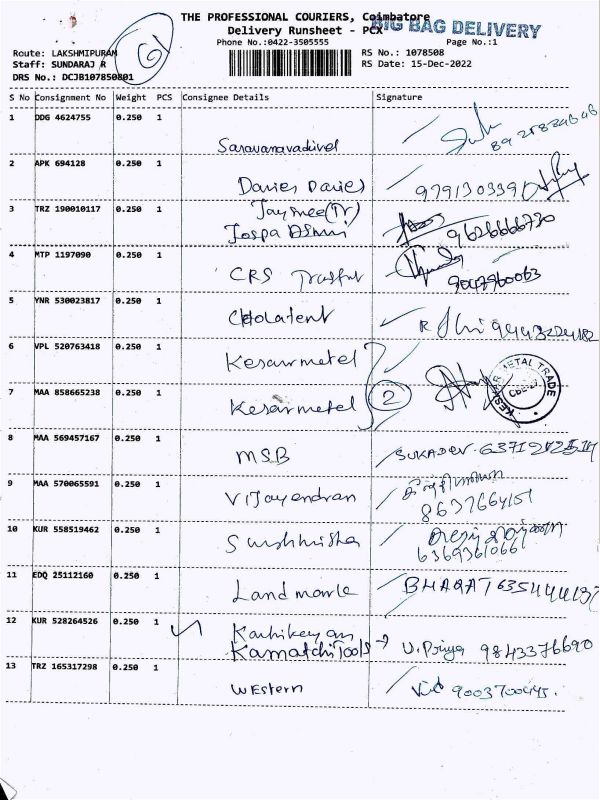 THE PROFESSIONAL COURIERS, Coimbatore
BIG BAG DELIVERY
Delivery Runsheet - PCX
Phone No.:0422-3505555 Page No.:1
Route: LAKSHMIPURAM RS No.: 1078508
Staff: SUNDARAJ R RS Date: 15-Dec-2022
DRS No.: DCJB107850801
S No Consignment No Weight PCS Consignee Details Signature
1 DDG 4624755 0.250 1
Saravanavadivel
2 APK 694128 0.250 1
Davies Davies 9791303390
3 TRZ 190010117 0.250 1 Jaysree(Tr)
9626666730
4 MTP 1197090 0.250 1
CRS 9047960063
5 YNR 530023817 0.250 1
6 VPL 520763418 0.250 1
Kesarmetel
KESHAR METAL TRADE
2
7 MAA 858665238 0.250 1
Kesarmetel
8 MAA 569457167 0.250 1
MSB SUKADEV
9 MAA 570065591 0.250 1
Vijayendran 8637664151
10 KUR 558519462 0.250 1
6369361066
11 EDQ 25112160 0.250 1
Landmark BHARAT
12 KUR 528264526 0.250 1
Karhikeyan
Kamatchi Tools → U. Priya 9843376690
13 TRZ 165317298 0.250 1
Western